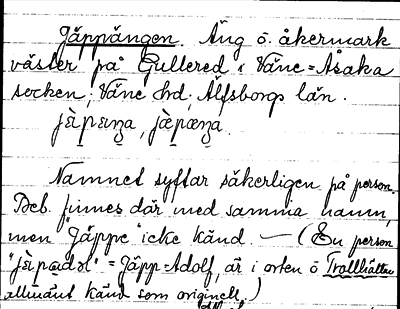 Jäppängen. Äng o. åkermark
väster på Gullered i Väne-Åsaka
socken, Väne hd, Älfsborgs län.
Namnet syftar säkerligen på person.
Beb. finnes där med samma namn,
men "Jäppe" icke känd. — (En person
= Jäpp-Adolf, är i orten o Trollhättan
allmänt känd som originell.)